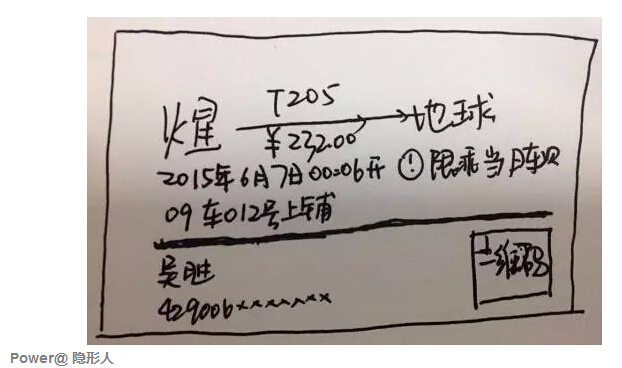 T205
火星 → 地球
¥232.00
2015年6月7日00:06开 ① 限乘当日车次
09车012号上铺
吴胜
429006×××××××
二维码
Power@ 隐形人